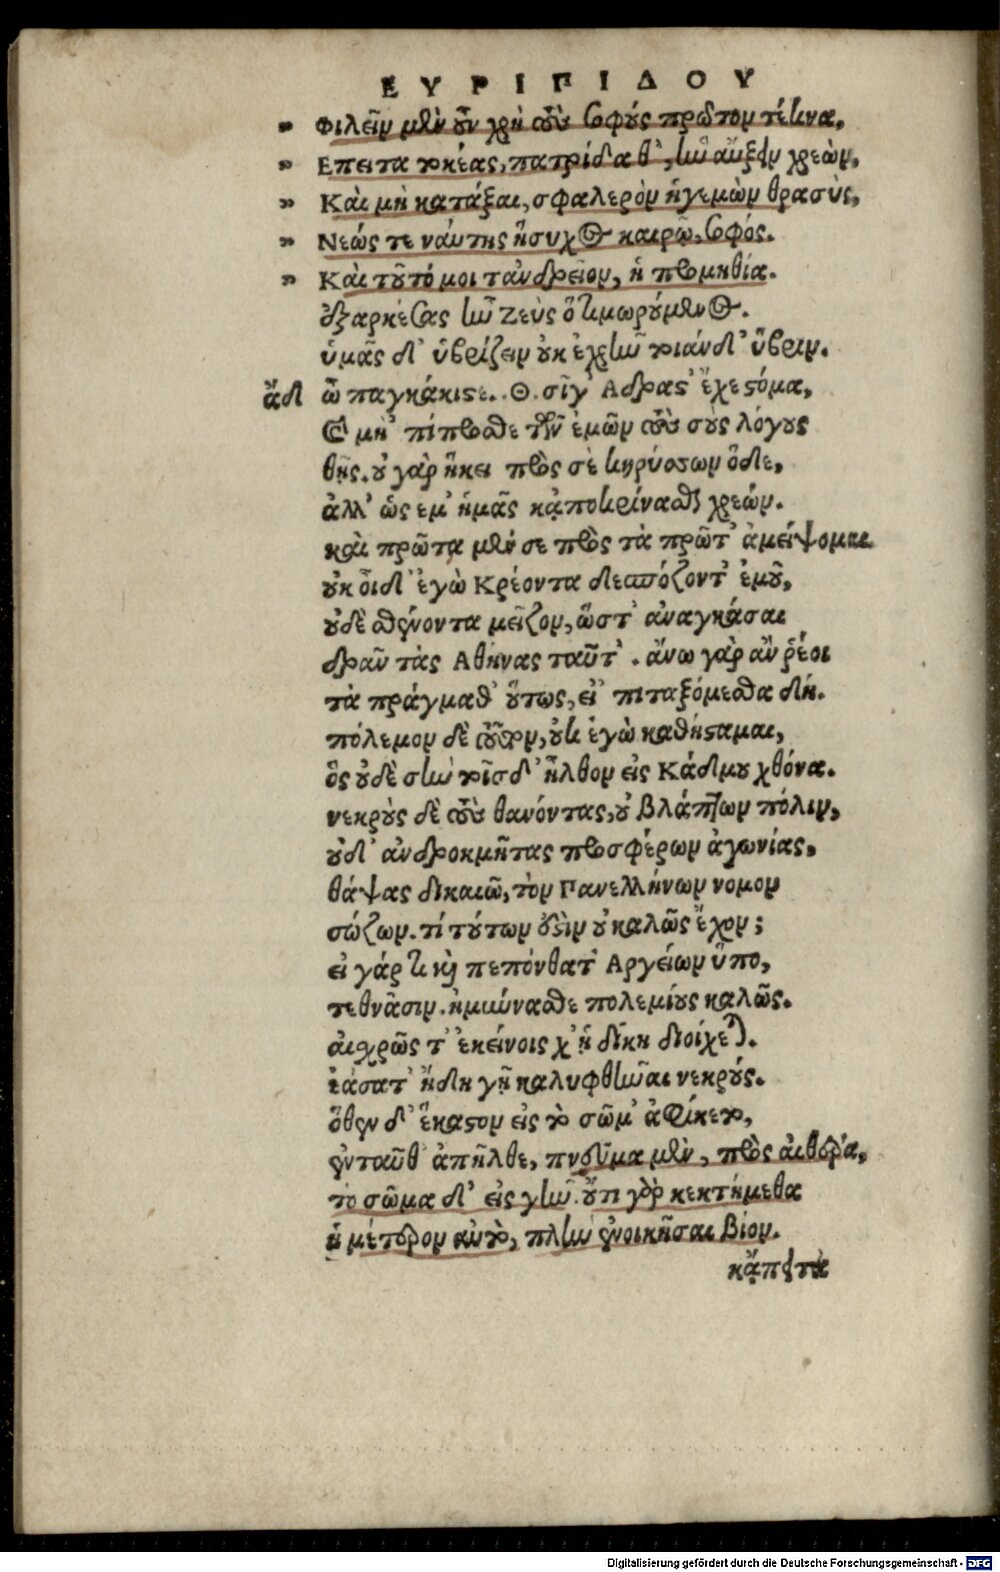 ΕΥΡΙΠΙΔΟΥ
" Φιλεῖν μὲν οὖν χρὴ τοὺς σοφοὺς πρῶτον τέκνα,
" Επειτα τοκέας, πατρίδα θ', ἣν αὔξειν χρεὼν,
" Καὶ μὴ κατάξαι, σφαλερὸν ἡγεμὼν θρασὺς,
" Νεώς τε ναύτης ἥσυχος καιρῷ, σοφός.
" Καὶ τοῦτό μοι τἀνδρεῖον, ἡ προμηθία.
ἐξαρκέσας ἦν Ζεὺς ὁ τιμωρούμενος.
ὑμᾶς δ' ὑβρίζειν οὐκ ἐχρῆν τοιάνδ' ὕβριν.
ἄδ ὦ παγκάκιστε. Θ. σῖγ' Αδρασ' ἔχε στόμα,
καὶ μὴ' πίπροσθε τῶν ἐμῶν τοὺς σοὺς λόγους
θῇς. οὐ γὰρ ἥκει πρὸς σὲ κηρύσσων ὅδε,
ἀλλ' ὡς εμ' ἡμᾶς κᾀποκρίνασθαι χρεών.
καὶ πρῶτα μέν σε πρὸς τὰ πρῶτ' ἀμείψομαι
οὐκ οἶδ' ἐγὼ Κρέοντα δεσπόζοντ' ἐμοῦ,
οὐδὲ σθένοντα μεῖζον, ὥστ' ἀναγκάσαι
δρᾶν τὰς Αθήνας ταῦτ'. ἄνω γὰρ ἂν ῥέοι
τὰ πράγμαθ' οὕτως, εἰ' πιταξόμεσθα δή.
πόλεμον δὲ τοῦτον, οὐκ ἐγὼ καθήσαμαι,
ὃς οὐδὲ σὺν τοῖσδ' ἦλθον εἰς Κάδμου χθόνα.
νεκροὺς δὲ τοὺς θανόντας, οὐ βλάπτων πόλιν,
οὐδ' ἀνδροκμῆτας προσφέρων ἀγωνίας,
θάψας δικαιῶ, τὸν Πανελλήνων νομον
σώζων. τί τούτων ὅστὶν οὐ καλῶς ἔχον;
εἰ γάρ τι καὶ πεπόνθατ' Αργείων ὕπο,
τεθνᾶσιν. ἠμύνασθε πολεμίους καλῶς.
αἰσχρῶς τ' ἐκείνοις χ' ᾑ δίκη διοίχεται.
ἐάσατ' ἤδη γῇ καλυφθῆναι νεκρούς.
ὅθεν δ' ἕκαστον εἰς το σῶμ' ἀφίκετο,
ἐνταῦθ' ἀπῆλθε, πνεῦμα μὲν, πρὸς αἰθέρα,
τὸ σῶμα δ' εἰς γῆν. οὔτι γὰρ κεκτήμεθα
ἡμέτερον αὐτο, πλὴν ἐνοικῆσαι βίον.
κᾄπειτα
Digitalisierung gefördert durch die Deutsche Forschungsgemeinschaft - DFG